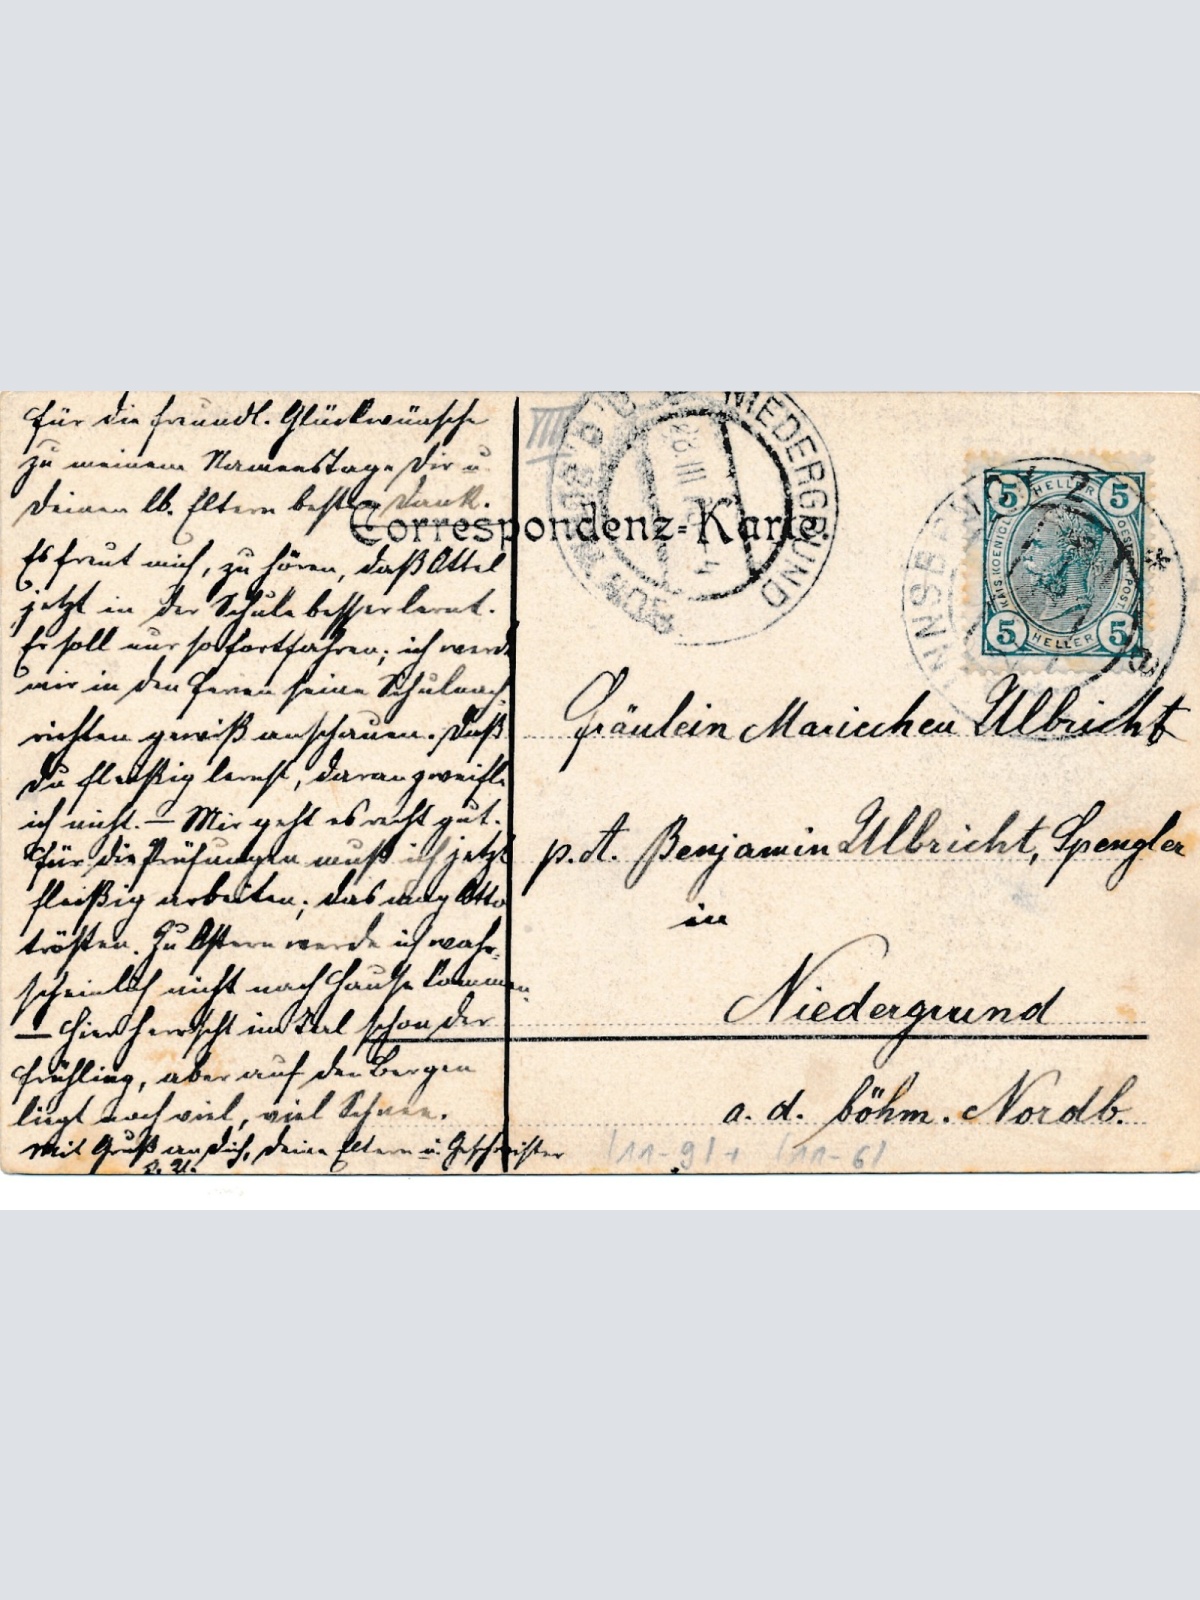 Für die freundl. Glückwünsche
zu meinem Namenstage Dir u.
Deinen lb. Eltern besten Dank.
Es freut mich, zu hören, daß Ottel
jetzt in der Schule besser lernt.
Er soll nur so fortfahren; ich werde
mir in den Ferien seine Schulnach-
richten gewiß anschauen. Daß
Du fleißig lernst, daran zweifle
ich nicht. — Mir geht es recht gut.
Für die Prüfungen muß ich jetzt
fleißig arbeiten; das mag Otto
trösten. Zu Ostern werde ich wahr-
scheinlich nicht nach Hause kommen.
— Hier herrscht im Tal schon der
Frühling, aber auf den Bergen
liegt noch viel, viel Schnee.
Mit Gruß an Dich, Deine Eltern u. Geschwister
Correspondenz-Karte.
VIII
NIEDERGRUND
28 III
INNSBRUCK
5 HELLER 5
KAIS. KOENIGL. OESTERR. POST.
5 HELLER 5
Fräulein Mariechen Ulbricht
p. A. Benjamin Ulbricht, Spengler
in
Niedergrund
a. d. böhm. Nordb.
/11-9/+ /11-6/